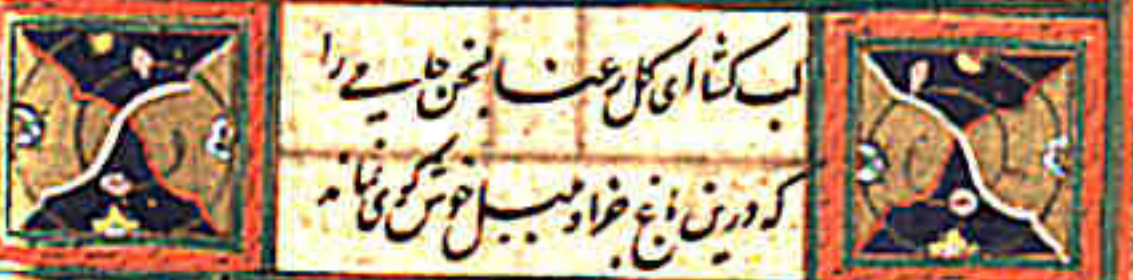 لب کشا ای کل رعنا بسخن جامی را
که درین باغ جز او بلبل خوش کوی نماند